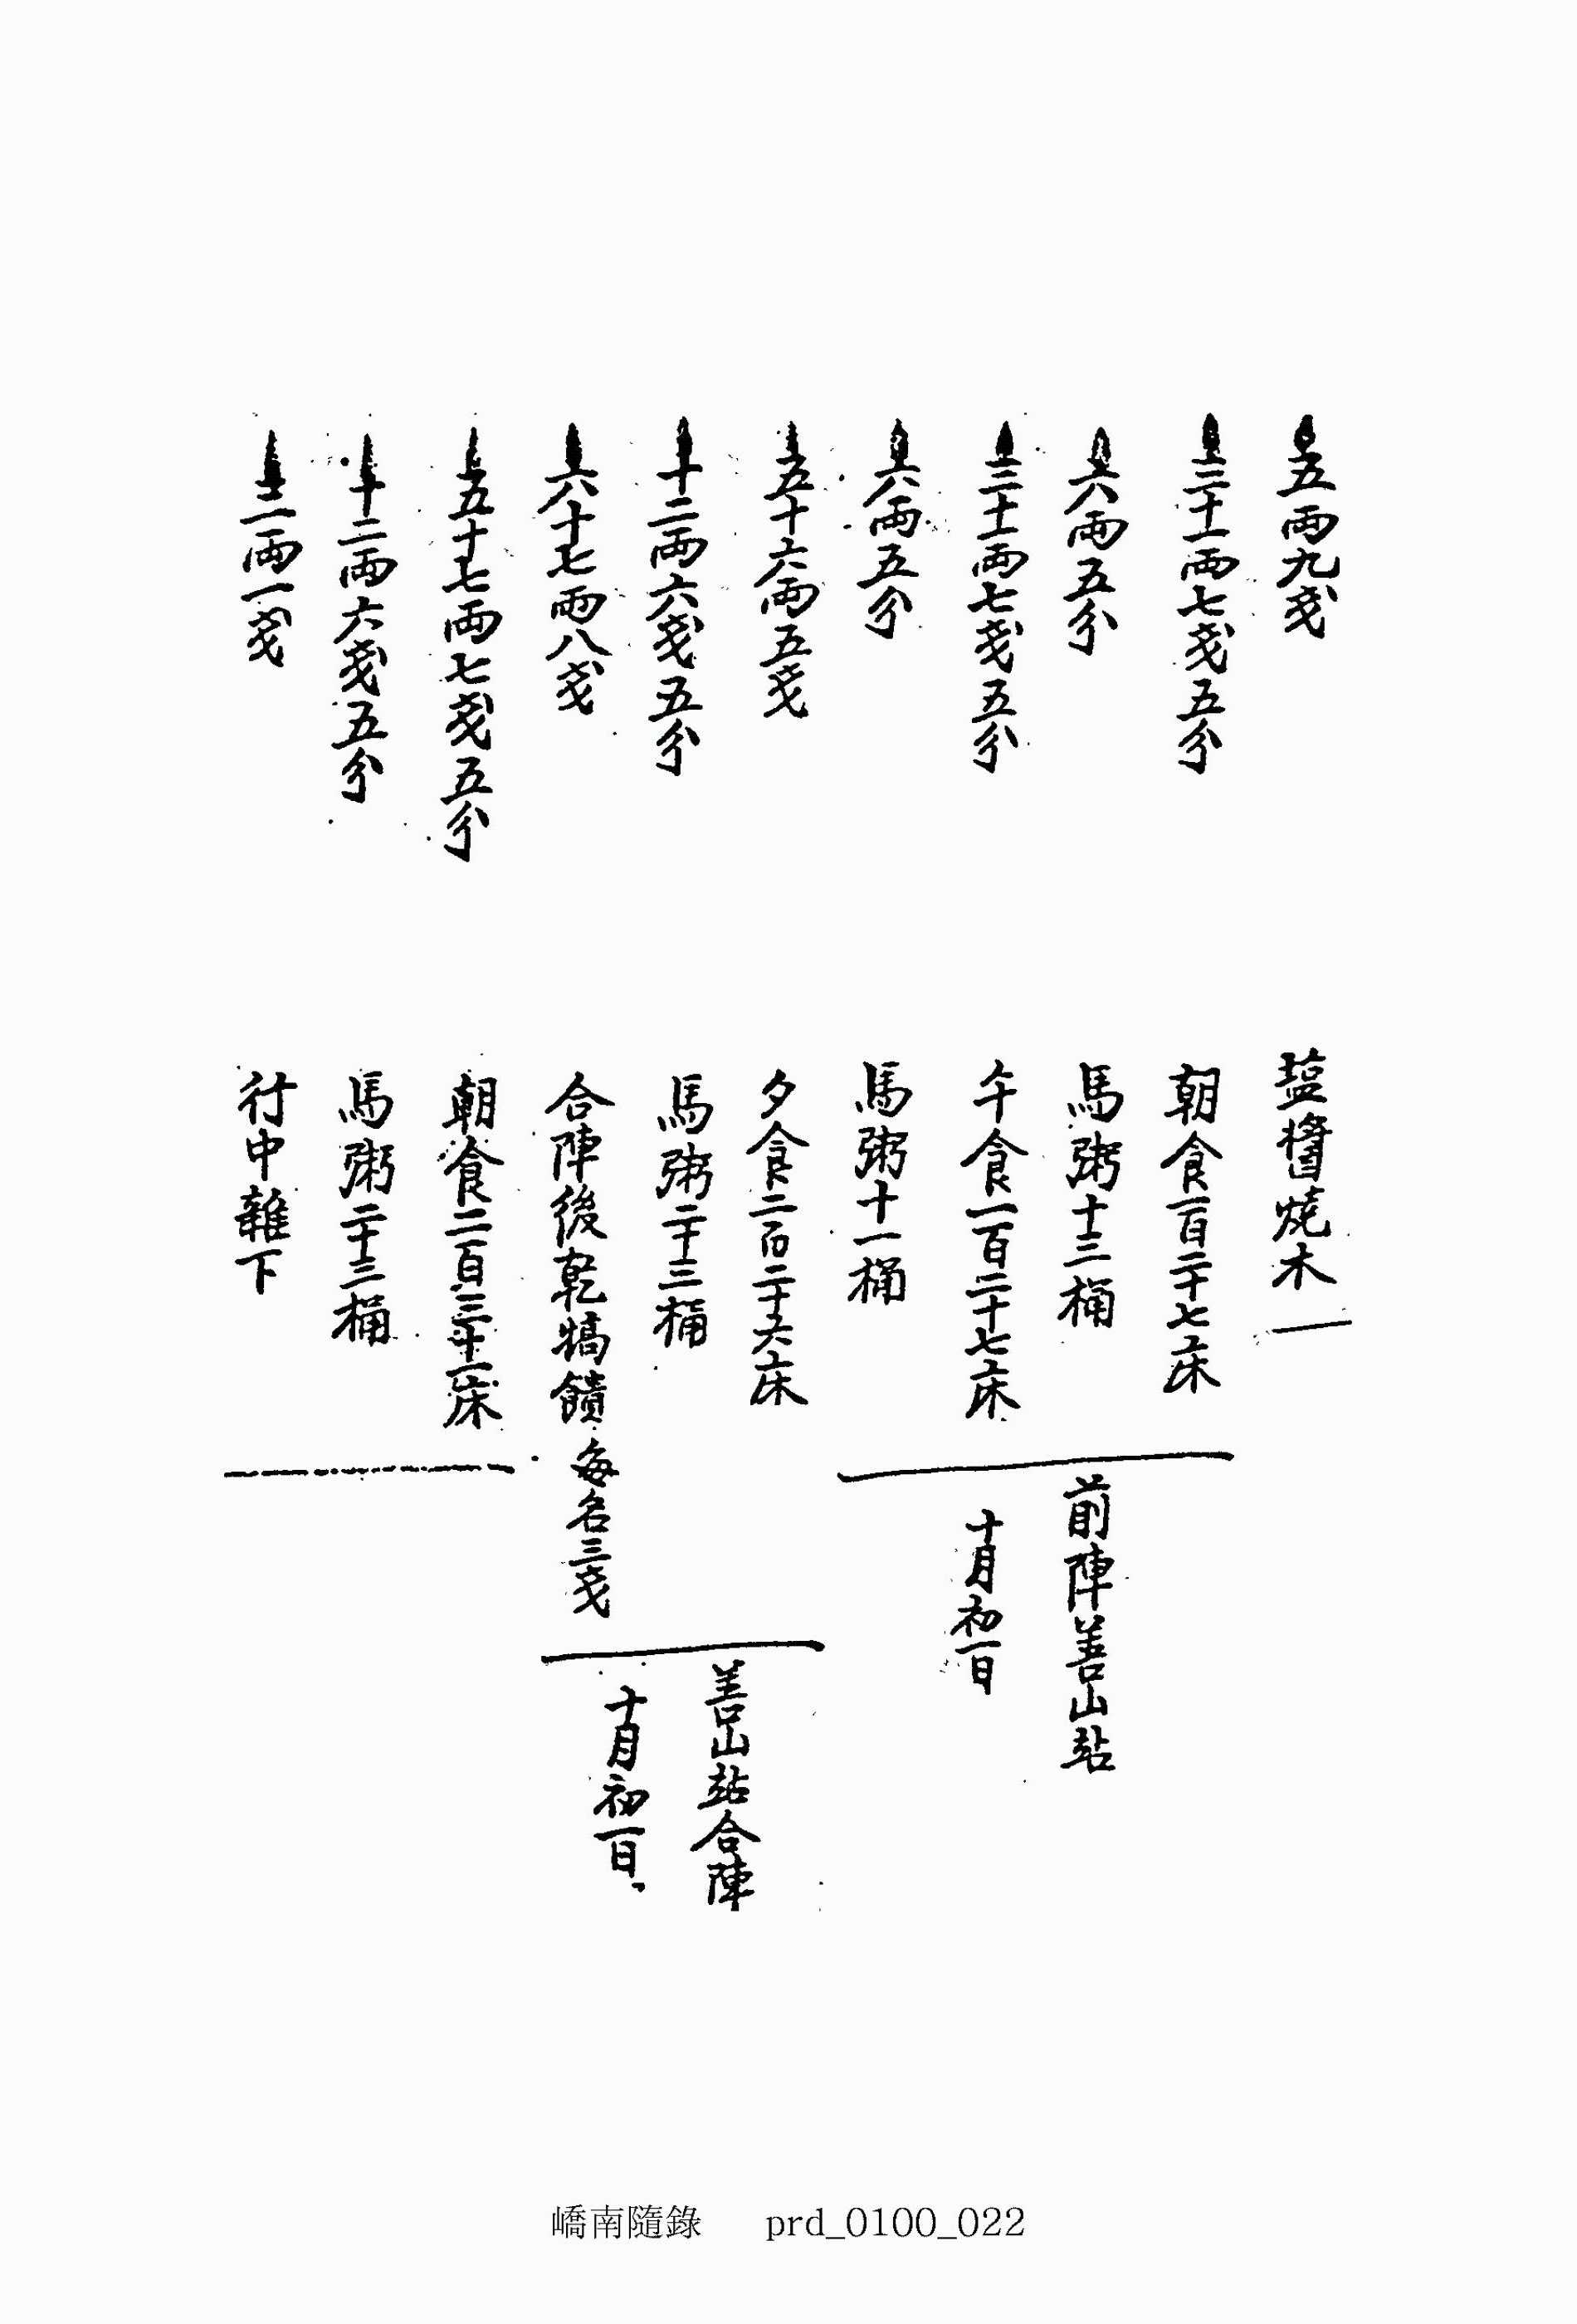 五兩九戔
塩醬燒木
三十一兩七戔五分
朝食一百二十七床
六兩五分
馬粥十三桶
前陣善山站
三十一兩七戔五分
午食一百二十七床
十月初一日
六兩五分
馬粥十一桶
五十六兩五戔
夕食二百二十六床
十二兩六戔五分
馬粥二十三桶
善山站合陣
六十七兩八戔
合陣後乾犒饋 每名三戔
十月初一日
五十七兩七戔五分
朝食二百三十一床
十二兩六戔五分
馬粥二十三桶
二兩一戔
行中雜下
嶠南隨錄 prd_0100_022